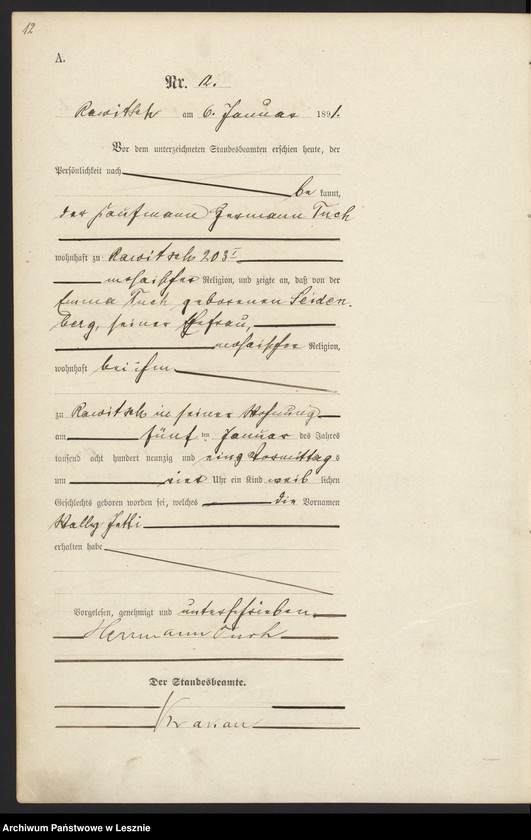 12
A.
Nr. 12.
Rawitsch am 6. Januar 1891.
Vor dem unterzeichneten Standesbeamten erschien heute, der
Persönlichkeit nach
be kannt,
der Kaufmann Hermann Tuch
wohnhaft zu Rawitsch 203
mosaischer Religion, und zeigte an, daß von der
Emma Tuch geborenen Seiden-
berg, seiner Ehefrau,
mosaischer Religion,
wohnhaft bei ihm
zu Rawitsch in seiner Wohnung
am fünf ten Januar des Jahres
tausend acht hundert neunzig und eins Vormittags
um vier Uhr ein Kind weib lichen
Geschlechts geboren worden sei, welches die Vornamen
Wally
erhalten habe
Vorgelesen, genehmigt und unterschrieben.
Herrmann Tuch
Der Standesbeamte.
Archiwum Państwowe w Lesznie